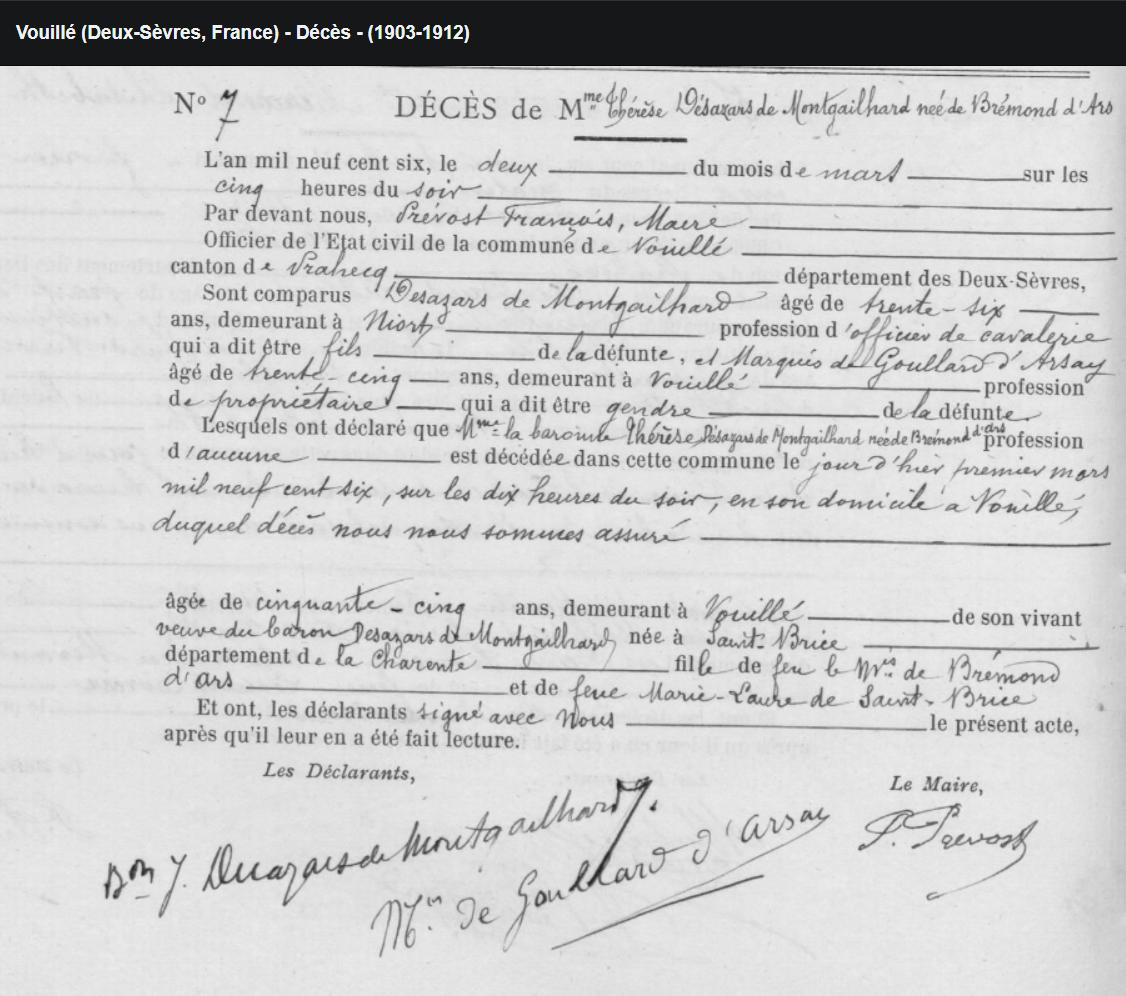 Vouillé (Deux-Sèvres, France) - Décès - (1903-1912)
N° 7 DÉCÈS de Mme Thérèse Désazars de Montgailhard neé de Brémond d'Ars
L'an mil neuf cent six, le deux du mois de mars sur les
cinq heures du soir
Par devant nous, Prévost François, Maire
Officier de l'Etat civil de la commune de Vouillé
canton de Prahecq département des Deux-Sèvres,
Sont comparus Désazars de Montgailhard âgé de trente-six
ans, demeurant à Niort profession d'officier de cavalerie
qui a dit être fils de la défunte, et Marquis de Goullard d'Arsay
âgé de trente-cinq ans, demeurant à Vouillé profession
de propriétaire qui a dit être gendre de la défunte
Lesquels ont déclaré que Mme la baronne Thérèse Désazars de Montgailhard née de Brémond d'ars profession
d'aucune est décédée dans cette commune le jour d'hier premier mars
mil neuf cent six, sur les dix heures du soir, en son domicile à Vouillé,
duquel décès nous nous sommes assuré
âgée de cinquante-cinq ans, demeurant à Vouillé de son vivant
veuve du baron Desazars de Montgailhard née à Saint-Brice
département de la Charente fille de feu le Mis de Brémond
d'ars et de feue Marie-Laure de Saint-Brice
Et ont, les déclarants signé avec Nous le présent acte,
après qu'il leur en a été fait lecture.
Les Déclarants,
Le Maire,
Bon J. Desazars de Montgailhard
P. Prevost
Mis de Goullard d'Arsay